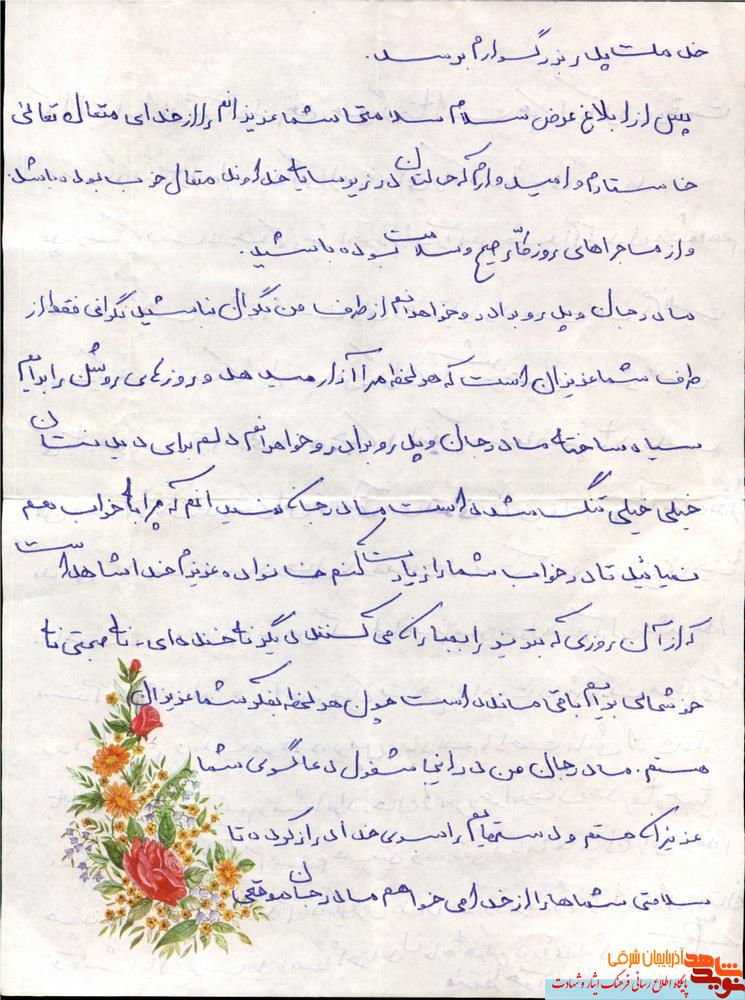 خدمت پدر بزرگوارم برسد.
پس از ابلاغ عرض سلام سلامتی شما عزیزانم را از خدای متعال تعالی
خواستارم و امیدوارم که حالتان در زیر سایه خداوند متعال خوب بوده باشد
و از ماجراهای روزگار صحیح و سلامت بوده باشید.
مادر جان و پدر و برادر و خواهرانم از طرف من نگران نباشید نگرانی فقط از
طرف شما عزیزان است که هر لحظه مرا آزار میدهد و روزهای روشن را برایم
سیاه ساخته مادر جان و پدر و برادر و خواهرانم دلم برای دیدنتان
خیلی خیلی تنگ شده است مادر جان نمیدانم که چرا به خواب هم
نمیائید تا در خواب شما را زیارت کنم خانواده عزیزم خدا شاهد است
که از آن روزی که تبریز را بمباران می کنند دیگر نه خنده ای، نه صحبتی نه
خوشحالی برایم باقی مانده است چون هر لحظه بفکر شما عزیزان
هستم. مادر جان من در اینجا مشغول دعاگوی شما
عزیزان هستم و دستهایم را سوی خدا دراز کرده تا
سلامتی شماها را از خدا می خواهم مادر جان موقعی
نوید شاهد آذربایجان شرقی
پایگاه اطلاع رسانی فرهنگ ایثار و شهادت